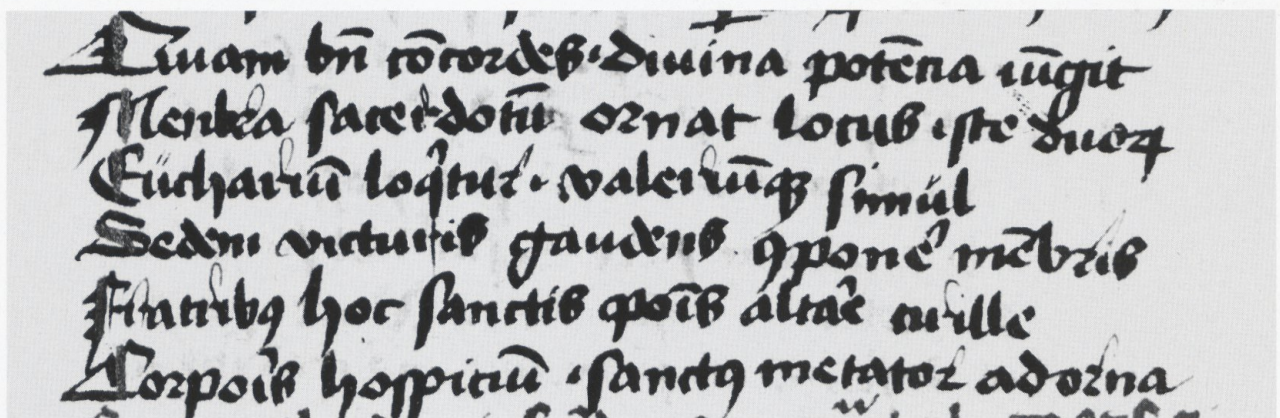 Quam bn̄ cōcordes · diuina potēcia iūgit
Menbra sacerdotū ornat locus iste duoꝝ
Euchariū loqͥtur · valeriūqꝫ simul
Sedem victuris gaudens ꝯpone᷑ mēbris
Fratribꝰ hoc sanctis poīs altar̄e curille
Corpoı᷑s hospiciū · sanctꝰ metator adorna